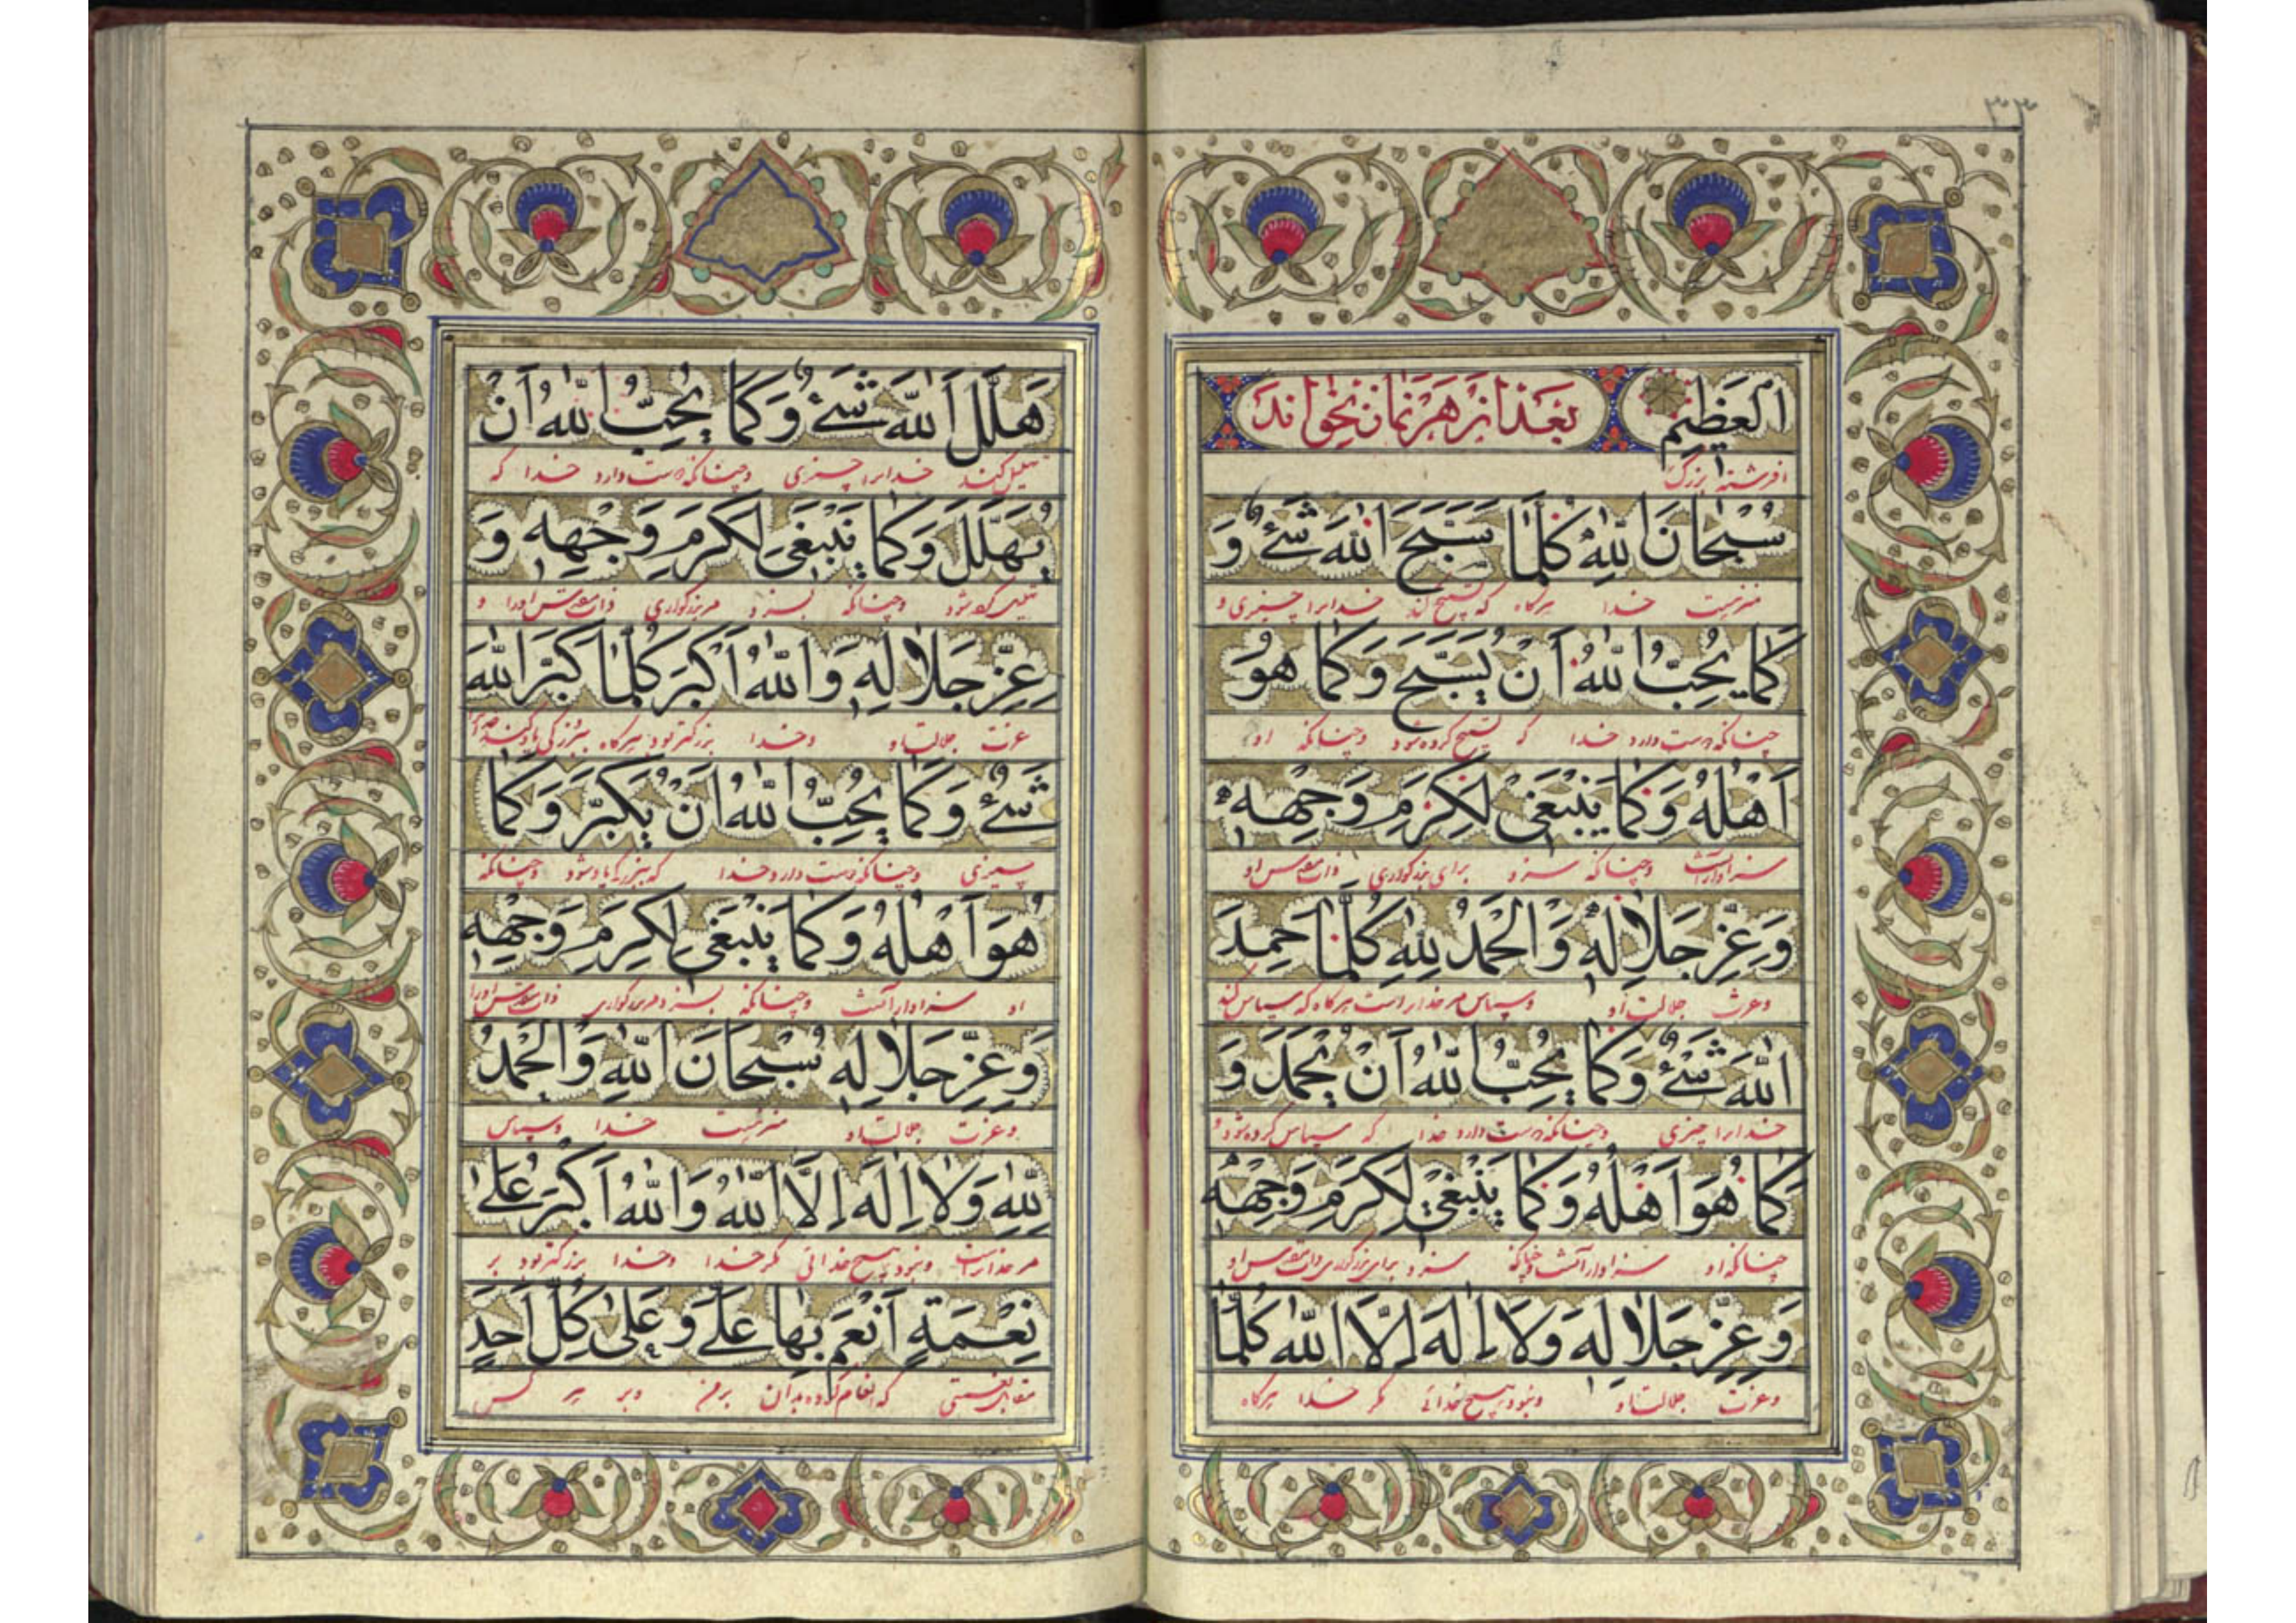 ٣٠٣
اَلْعَظِیمِ
بَعْد از هَر نَماز بخواند
آفرشنده بزرگ
سُبْحانَ اللّٰهِ كُلَّما سَبَّحَ اللّٰهَ شَیْءٌ وَ
منزهست خدا هرگاه که تسبیح کند خدایرا چیزی و
كَما یُحِبُّ اللّٰهُ اَنْ یُسَبَّحَ وَكَما هُوَ
چنانکه دوست دارد خدا که تسبیح کرده شود و چنانکه او
اَهْلُهُ وَكَما یَنْبَغی لِكَرَمِ وَجْهِهِ
سزاوار آنست و چنانکه سزد برای بزرگواری ذات مقدس او
وَعِزِّ جَلالِهِ وَالْحَمْدُ لِلّٰهِ كُلَّما حَمِدَ
و عزت جلالت او و سپاس مر خدایراست هرگاه که سپاس کند
اللّٰهَ شَیْءٌ وَكَما یُحِبُّ اللّٰهُ اَنْ یُحْمَدَ وَ
خدایرا چیزی و چنانکه دوست دارد خدا که سپاس کرده شود و
كَما هُوَ اَهْلُهُ وَكَما یَنْبَغی لِكَرَمِ وَجْهِهِ
چنانکه او سزاوار آنست و چنانکه سزد برای بزرگواری ذات مقدس او
وَعِزِّ جَلالِهِ وَلا اِلٰهَ اِلَّا اللّٰهُ كُلَّما
و عزت جلالت او و نبود هیچ خدائی مگر خدا هرگاه
هَلَّلَ اللّٰهَ شَیْءٌ وَكَما یُحِبُّ اللّٰهُ اَنْ
تهلیل کند خدایرا چیزی و چنانکه دوست دارد خدا که
یُهَلَّلَ وَكَما یَنْبَغی لِكَرَمِ وَجْهِهِ وَ
تهلیل کرده شود و چنانکه سزد مر بزرگواری ذات مقدس او را و
عِزِّ جَلالِهِ وَاللّٰهُ اَكْبَرُ كُلَّما كَبَّرَ اللّٰهَ
عزت جلالت او و خدا بزرگتر بود هرگاه ببزرگی یاد کند خدایرا
شَیْءٌ وَكَما یُحِبُّ اللّٰهُ اَنْ یُكَبَّرَ وَكَما
چیزی و چنانکه دوست دارد خدا که ببزرگی یاد شود و چنانکه
هُوَ اَهْلُهُ وَكَما یَنْبَغی لِكَرَمِ وَجْهِهِ
او سزاوار آنست و چنانکه سزد مر بزرگواری ذات مقدس او را
وَعِزِّ جَلالِهِ سُبْحانَ اللّٰهِ وَالْحَمْدُ
و عزت جلالت او منزهست خدا و سپاس
لِلّٰهِ وَلا اِلٰهَ اِلَّا اللّٰهُ وَاللّٰهُ اَكْبَرُ عَلٰی
مر خدایراست و نبود هیچ خدائی مگر خدا و خدا بزرگتر بود بر
نِعْمَةٍ اَنْعَمَ بِها عَلَیَّ وَعَلٰی كُلِّ اَحَدٍ
نعمتی که انعام کرده بدان بر من و بر هر کس